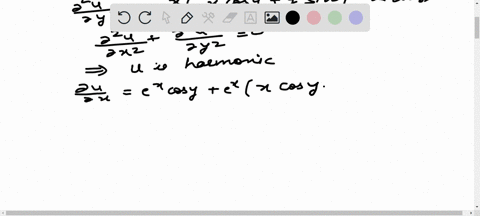 ∂²u/∂y
∂²u/∂x² + ∂²u/∂y² =
⇒ u is harmonic
∂u/∂x = eˣ cosy + eˣ ( x cosy